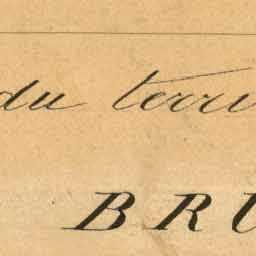 du terri
BRU